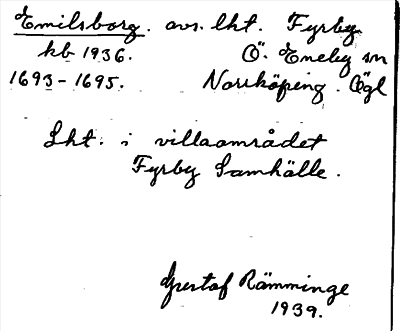 Emilsborg. avs. lht. Fyrby
kb 1936. Ö. Eneby sn
1693-1695. Norrköping. Ögl
Lht. i villaområdet
Fyrby Samhälle.
Gustaf Rämminge
1939.